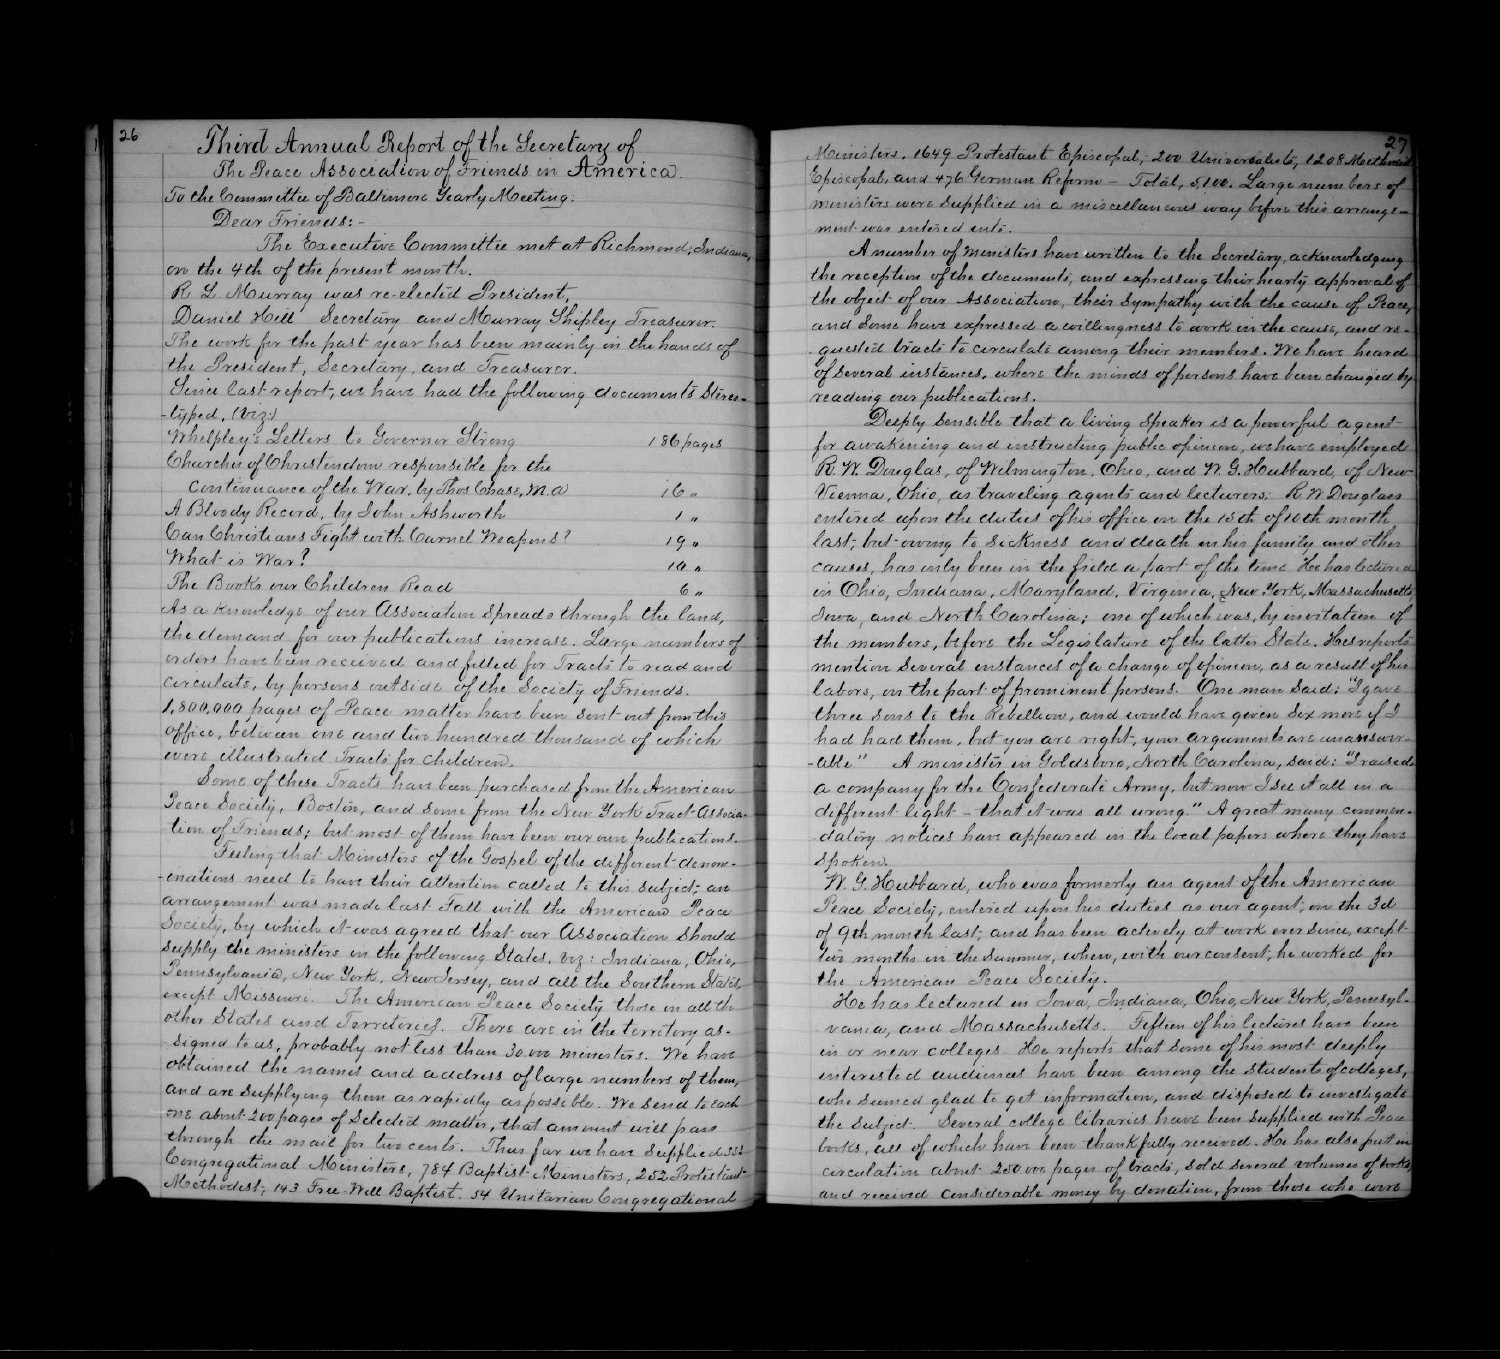 26
Third Annual Report of the Secretary of
The Peace Association of Friends in America.
To the Committee of Baltimore Yearly Meeting:
Dear Friends:-
The Executive Committee met at Richmond, Indiana,
on the 4th of the present month.
R. L. Murray was re-elected President,
Daniel Hill Secretary and Murray Shipley Treasurer.
The work for the past year has been mainly in the hands of
the President, Secretary, and Treasurer.
Since last report, we have had the following documents Stereo-
-typed, (viz:)
Whelpley's Letters to Governor Strong 186 pages
Churches of Christendom responsible for the
Continuance of the War, by Thos Chase, M.A 16 "
A Bloody Record, by John Ashworth 1 "
Can Christians Fight with Carnel Weapons? 19 "
What is War? 10 "
The Books our Children Read 6 "
As a Knowledge of our Association Spreads through the land,
the demand for our publications increase. Large numbers of
orders have been received and filled for Tracts to read and
circulate, by persons outside of the Society of Friends.
1,800,000 pages of Peace matter have been sent out from this
office, between one and two hundred thousand of which
were illustrated Tracts for children.
Some of these Tracts have been purchased from the American
Peace Society, Boston, and some from the New York Tract Associa-
tion of Friends; but most of them have been our own publications.
Feeling that Ministers of the Gospel of the different denom-
-enations need to have their attention called to this subject; an
arrangement was made last Fall with the American Peace
Society, by which it was agreed that our Association should
supply the ministers in the following States, viz: Indiana, Ohio,
Pennsylvania, New York, New Jersey, and all the Southern States,
except Missouri. The American Peace Society those in all the
other States and Territories. There are in the territory as-
signed to us, probably not less than 30.000 ministers. We have
obtained the names and address of large numbers of them,
and are supplying them as rapidly as possible. We send to each
one about 200 pages of Selected matter, that amount will pass
through the mail for two cents. Thus far we have Supplied
Congregational Ministers, 784 Baptist Ministers, 252 Protestant
Methodist, 143 Free-Will Baptist. 54 Unitarian Congregational
27
Ministers. 1649 Protestant Episcopal, 200 Universalists, 1208 Methodist
Episcopal, and 476 German Reform - Total, 5,100. Large numbers of
ministers were supplied in a miscellaneous way before this arrange-
ment was entered into.
A number of ministers have written to the Secretary, acknowledging
the reception of the documents, and expressing their hearty approval of
the object of our Association, their Sympathy with the cause of Peace,
and some have expressed a willingness to work in the cause, and re-
quested tracts to circulate among their members. We have heard
of several instances, where the minds of persons have been changed by
reading our publications.
Deeply Sensible that a living Speaker is a powerful agent
for awakening and instructing public opinion, we have employed
R. W. Douglas, of Wilmington, Ohio, and W. G. Hubbard, of New
Vienna, Ohio, as traveling agents and lecturers. R. W. Douglass
entered upon the duties of his office on the 15th of 10th month
last; but owing to Sickness and death in his family and other
causes, has only been in the field a part of the time. He has lectured
in Ohio, Indiana, Maryland, Virginia, New York, Massachusetts,
Iowa, and North Carolina; one of which was, by invitation of
the members, before the Legislature of the latter State. His reports
mention Several instances of a change of opinion, as a result of his
labors, on the part of prominent persons. One man Said: "I gave
three sons to the Rebellion, and would have given Six more if I
had had them, but you are right, your arguments are unanswer-
-able" A minister in Goldsboro, North Carolina, said: "I raised
a company for the Confederate Army, but now I See it all in a
different light - that it was all wrong." A great many commen-
-datory notices have appeared in the local papers where they have
spoken.
W. G. Hubbard, who was formerly an agent of the American
Peace Society, entered upon his duties as our agent, on the 3d
of 9th month last; and has been actively at work ever since, except
two months in the Summer, when, with our consent, he worked for
the American Peace Society.
He has lectured in Iowa, Indiana, Ohio, New York, Pennsyl-
vania, and Massachusetts. Fifteen of his lectures have been
in or near colleges He reports that some of his most deeply
interested audiences have been among the Students of colleges,
who seemed glad to get information, and disposed to investigate
the Subject. Several college libraries have been supplied with Peace
books, all of which have been thankfully received. He has also put in
circulation about 250000 pages of tracts, sold several volumes of books,
and received considerable money by donation, from those who were